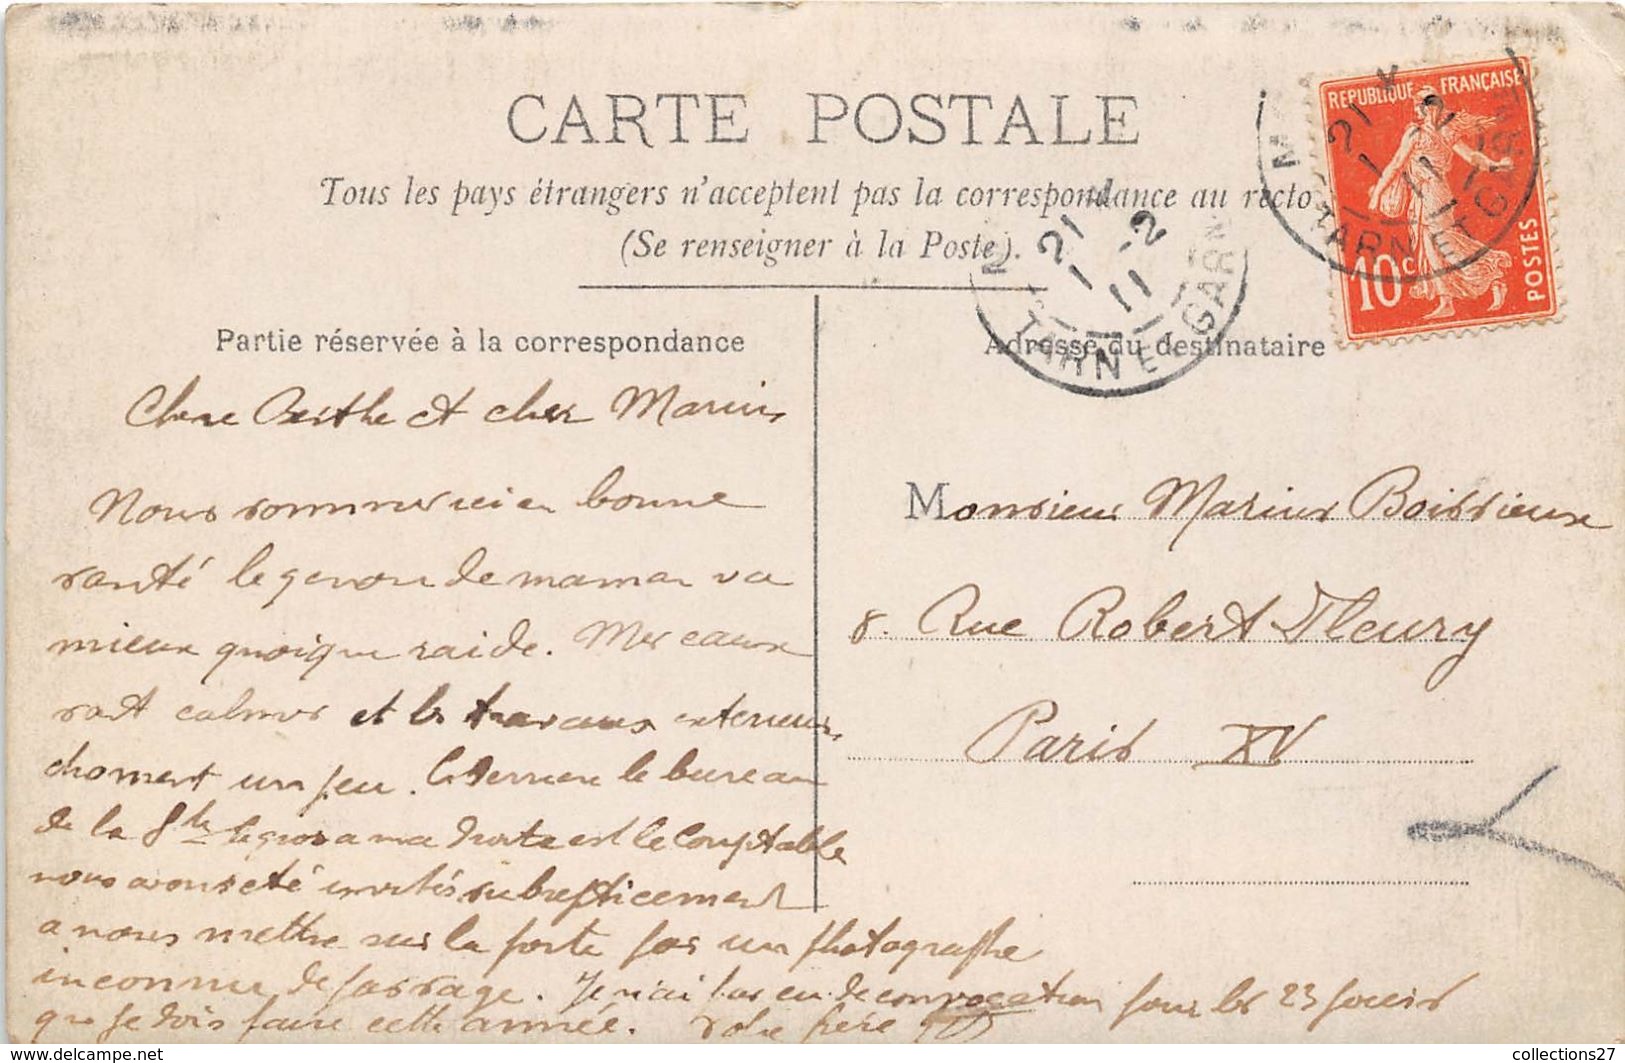 CARTE POSTALE
Tous les pays étrangers n'acceptent pas la correspondance au recto
(Se renseigner à la Poste).
RÉPUBLIQUE FRANÇAISE
10c POSTES
21 -2
1 11
TARN ET GARNE
21 -2
1 11
TARN ET GARN
Partie réservée à la correspondance
Chere Berthe et cher Marius
Nous sommes ici en bonne
santé le genou de maman va
mieux quoique raide. Mes eaux
sont calmes et les travaux exterieurs
choment un peu. derriere le bureau
de la Sté le gros a ma droite est le Comptable
nous avons été invités subrepticement
a nous mettre sur la porte par un photographe
inconnu de passage. Je n'ai pas eu de convocation pour les 23 jours
que je dois faire cette année. votre frère
Adresse du destinataire
Monsieur Marius Boissieux
8. Rue Robert Fleury
Paris XV
collections27